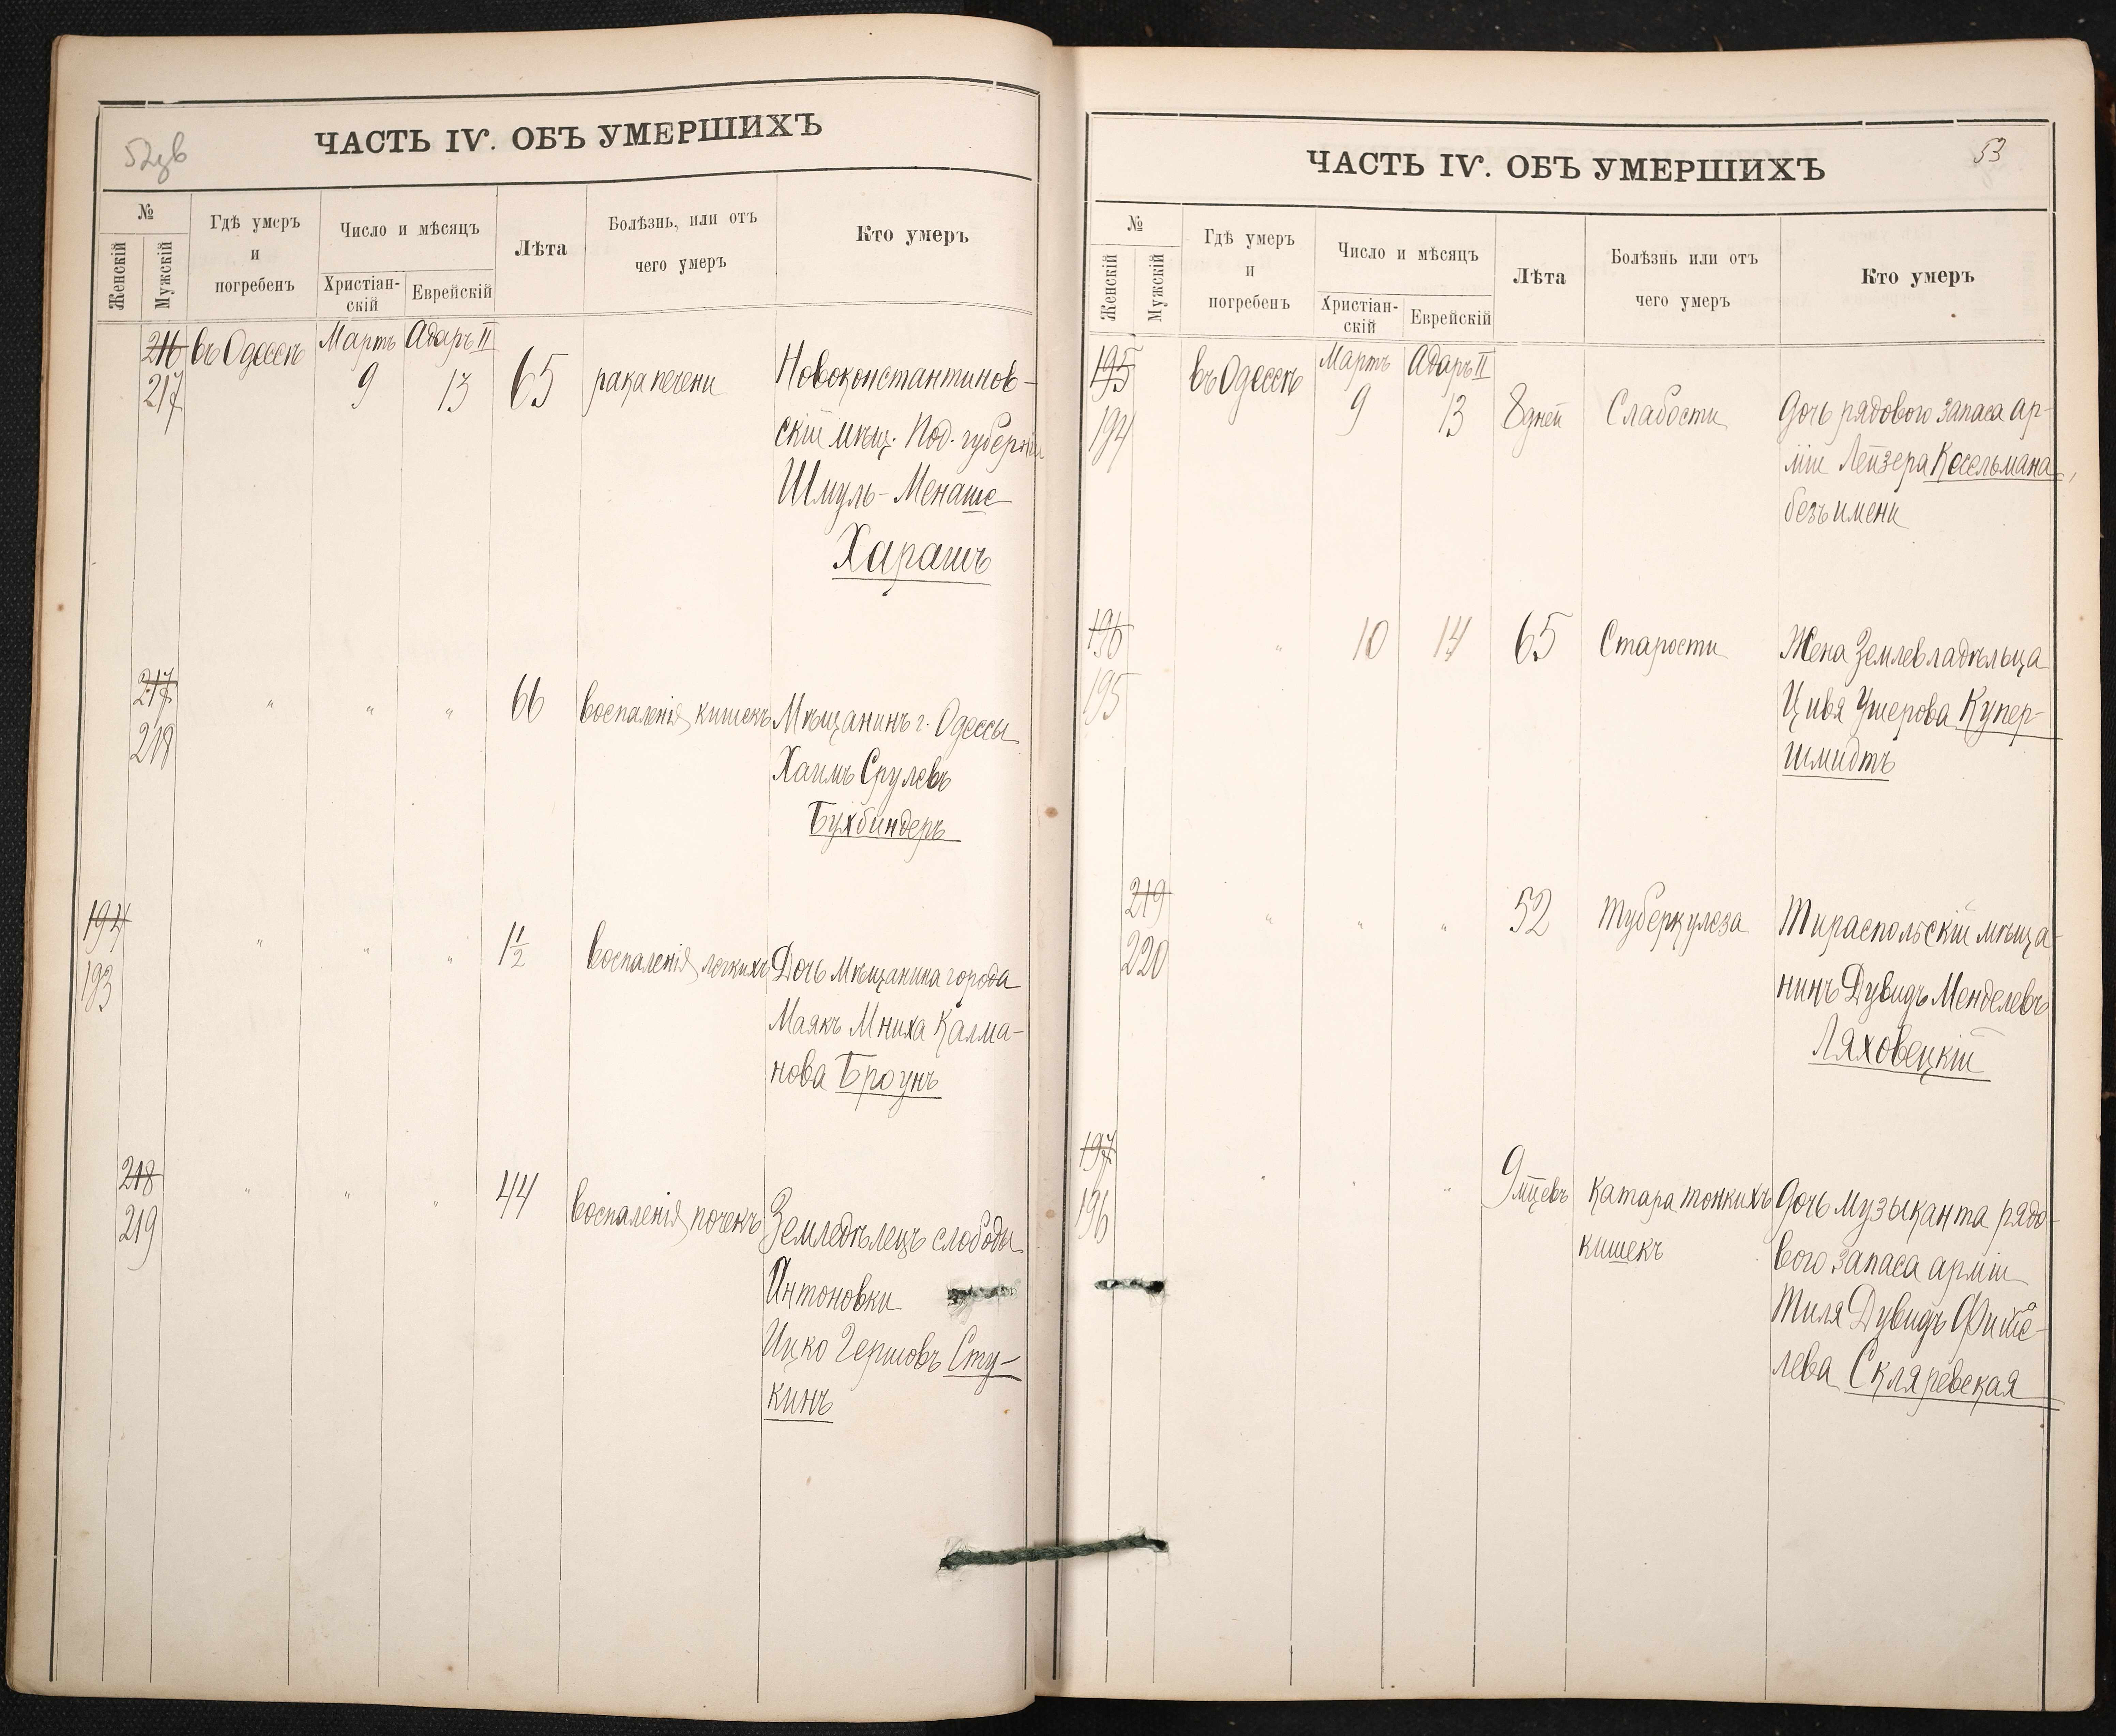 52зв
ЧАСТЬ IV. ОБЪ УМЕРШИХЪ
№
Женскій
Мужскій
Гдѣ умеръ
и
погребенъ
Число и мѣсяцъ
Христіан-
скій
Еврейскій
Лѣта
Болѣзнь, или отъ
чего умеръ
Кто умеръ
216
217
въ Одессѣ
Мартъ
9
Адаръ II
13
65
рака печени
Новоконстантинов-
скій мѣщ. Под. губерніи
Шмуль-Менаше
Харашъ
217
218
"
"
"
66
воспаленія кишекъ
Мѣщанинъ г. Одессы
Хаимъ Срулевъ
Бухбиндеръ
194
193
"
"
"
1 1/2
воспаленія легкихъ
Дочь мѣщанина города
Маякъ Мниха Калма-
нова Броунъ
218
219
"
"
"
44
воспаленія почекъ
Земледѣлецъ слободы
Антоновки
Ицко Гершовъ Сту-
кинъ
53
ЧАСТЬ IV. ОБЪ УМЕРШИХЪ
№
Женскій
Мужскій
Гдѣ умеръ
и
погребенъ
Число и мѣсяцъ
Христіан-
скій
Еврейскій
Лѣта
Болѣзнь или отъ
чего умеръ
Кто умеръ
195
194
въ Одессѣ
Мартъ
9
Адаръ II
13
8 дней
Слабости
Дочь рядового запаса ар-
міи Лейзера Косельмана,
безъ имени
196
195
"
10
14
65
Старости
Жена Землевладѣльца
Цивя Ушерова Купер-
шмидтъ
219
220
"
"
"
52
Туберкулеза
Тираспольскій мѣща-
нинъ Дувидъ Менделевъ
Ляховецкій
197
196
"
"
"
9 мцевъ
Катара тонкихъ
кишекъ
Дочь музыканта рядо-
вого запаса арміи
Тиля Дувидъ
лева Скляревская